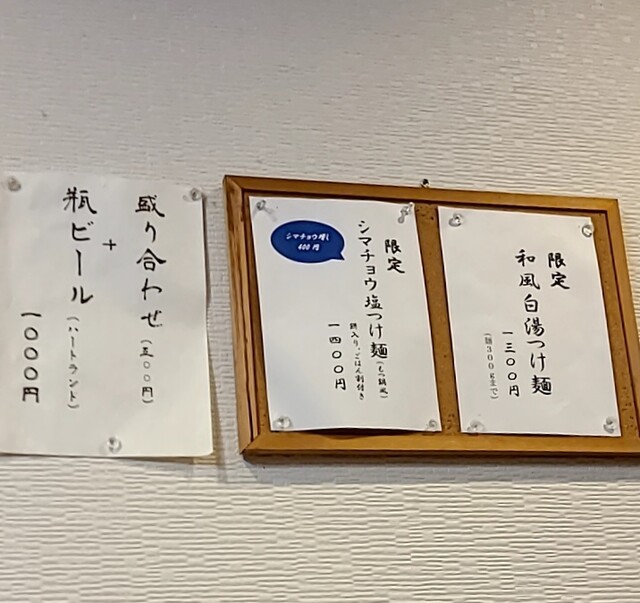 限定
和風白湯つけ麺
一三〇〇円
(麺300gまで)
限定
シマチョウ塩つけ麺(もつ鍋風)
餅入り、ごはん割付き
一四〇〇円
シマチョウ増し
400円
盛り合わせ(五〇〇円)
+
瓶ビール(ハートランド)
一〇〇〇円